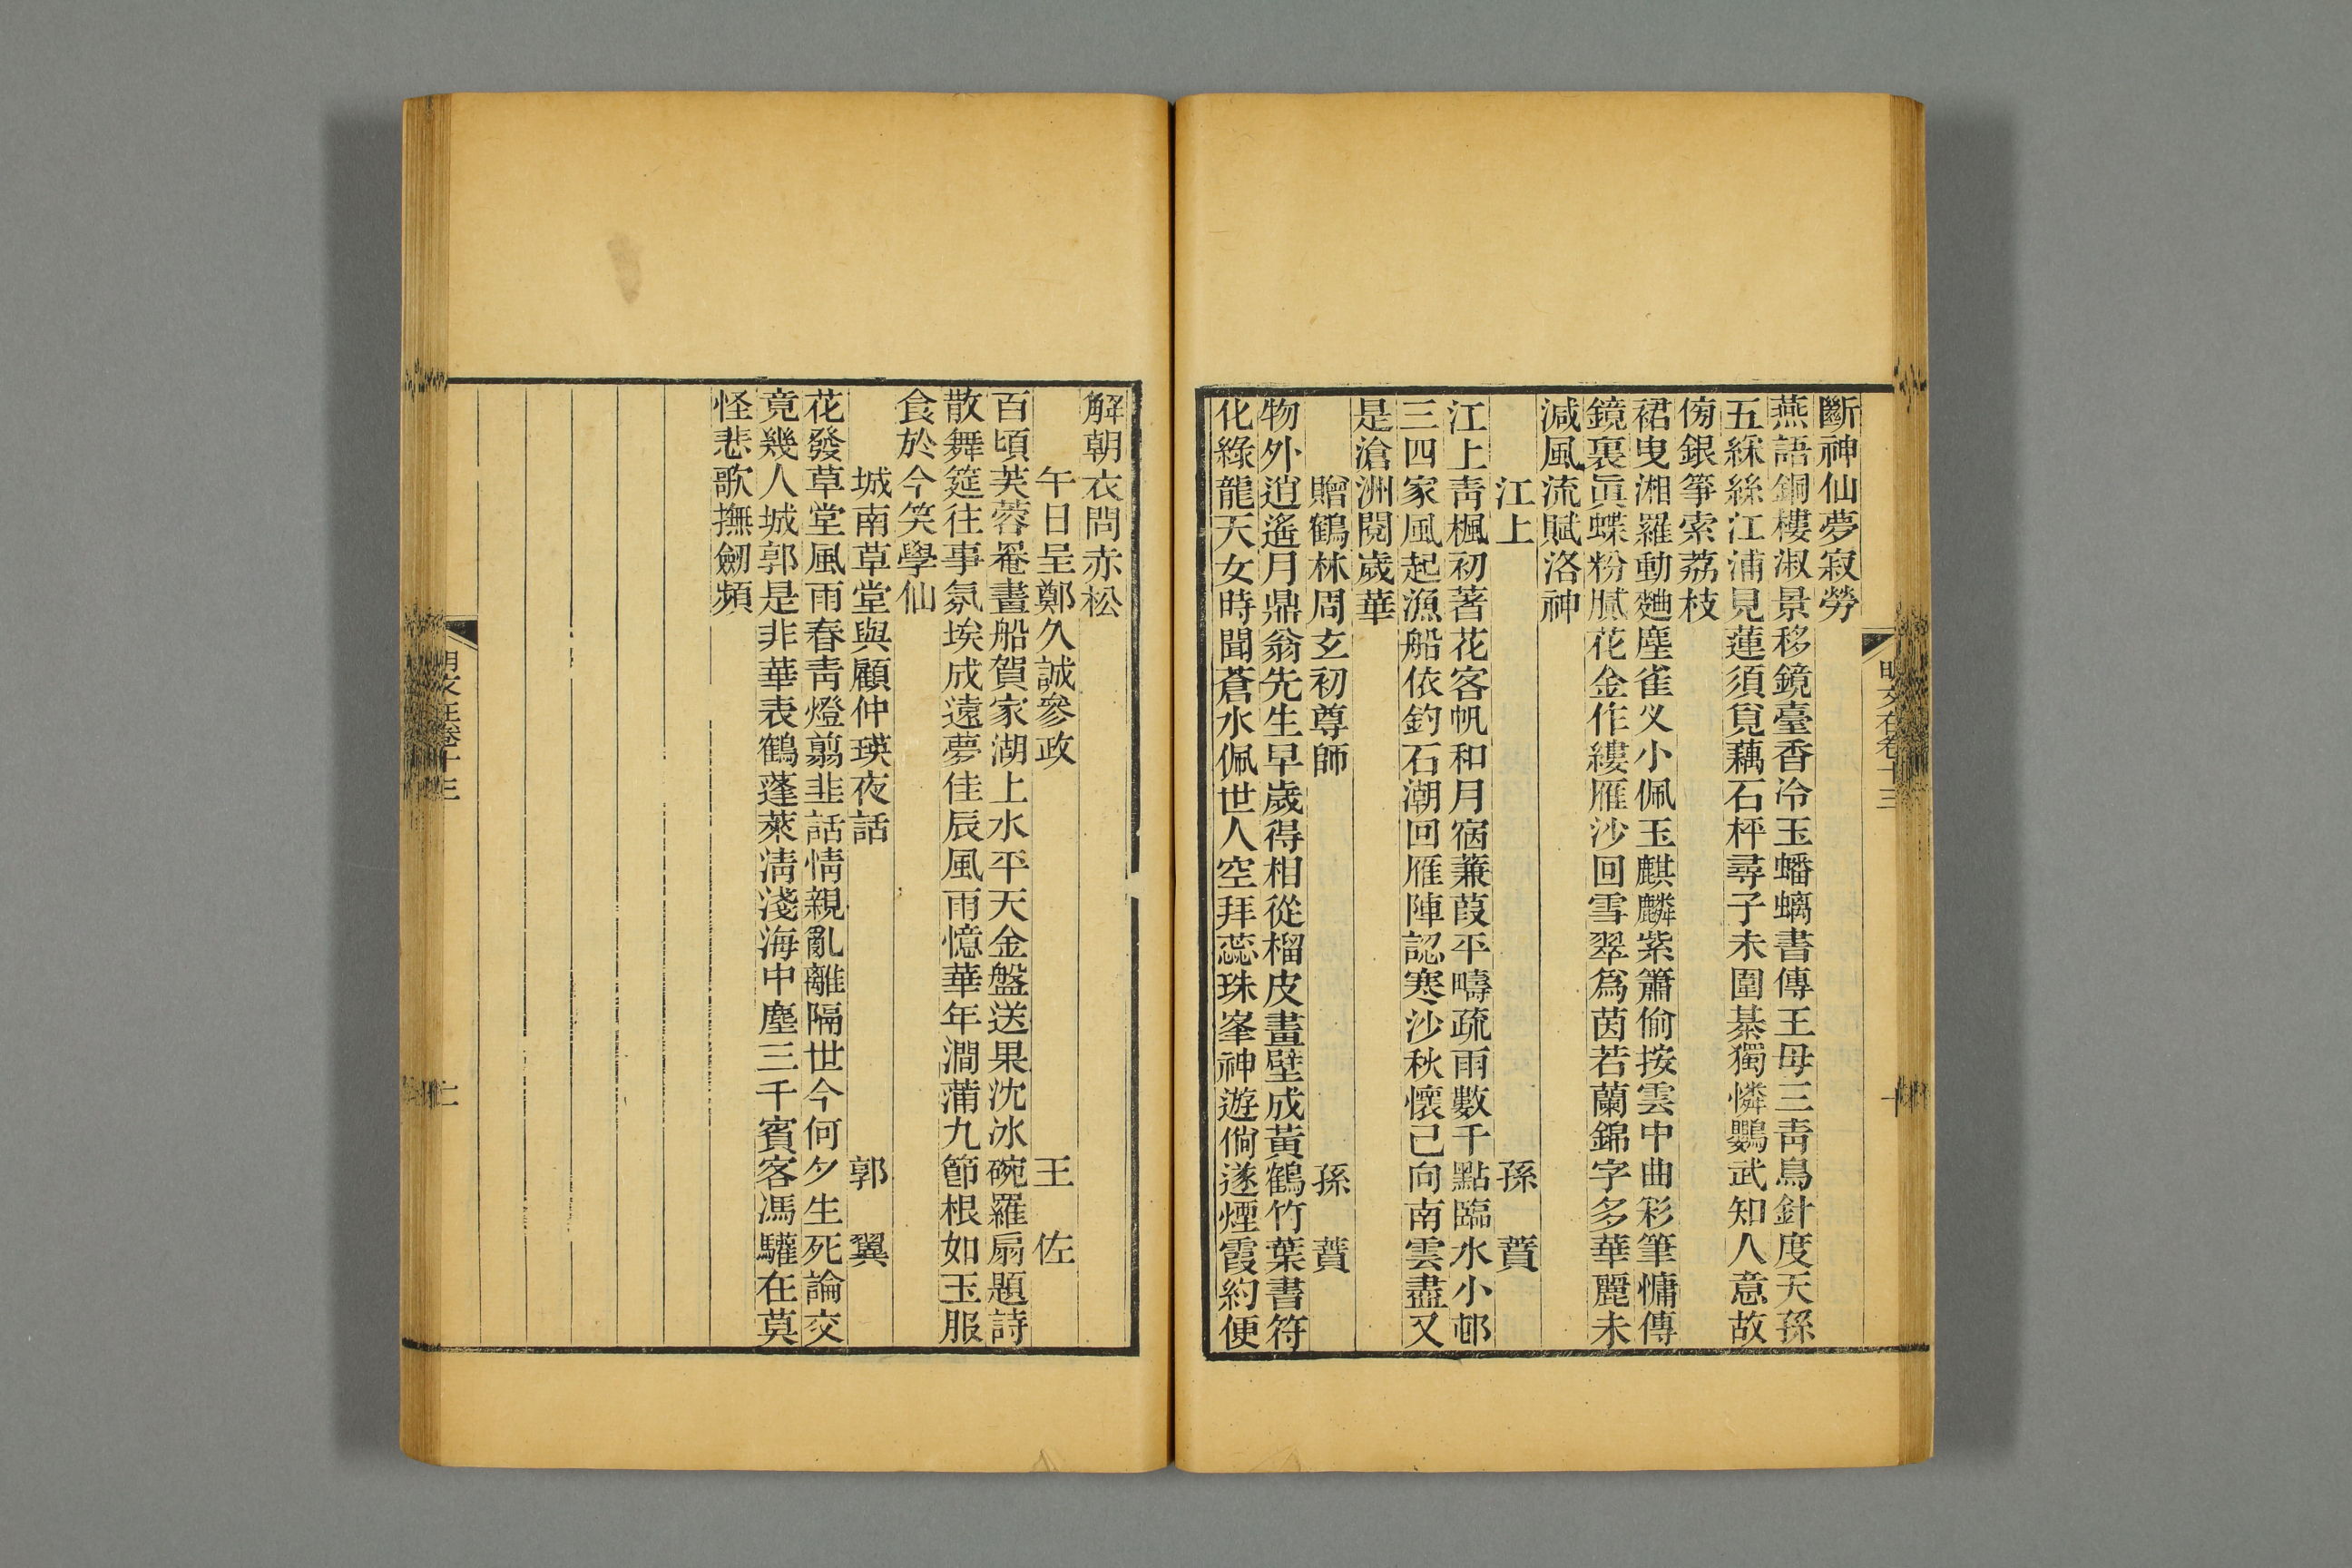 斷神仙夢寂勞
燕語銅樓淑景移鏡臺香冷玉蟠螭書傳王母三靑鳥針度天孫
五綵絲江浦見蓮須覓藕石枰尋子未圍棊獨憐鸚武知人意故
傍銀箏索荔枝
裙曳湘羅動麯塵雀釵小佩玉麒麟紫簫偷按雲中曲彩筆慵傳
鏡裏眞蝶粉膩花金作縷雁沙回雪翠爲茵若蘭錦字多華麗未
減風流賦洛神
江上 孫蕡
江上靑楓初著花客帆和月宿蒹葭平疇疏雨數千點臨水小邨
三四家風起漁船依釣石潮回雁陣認寒沙秋懷已向南雲盡又
是滄洲閱歲華
贈鶴林周玄初尊師 孫蕡
物外逍遙月鼎翁先生早歲得相從榴皮畫壁成黃鶴竹葉書符
化綠龍天女時聞蒼水佩世人空拜蕊珠峯神遊倘遂煙霞約便
明文在卷十三
十一
解朝衣問赤松
午日呈鄭久誠參政 王佐
百頃芙蓉罨畫船賀家湖上水平天金盤送果沈冰碗羅扇題詩
散舞筵往事氛埃成遠夢佳辰風雨憶華年澗蒲九節根如玉服
食於今笑學仙
城南草堂與顧仲瑛夜話 郭翼
花發草堂風雨春靑燈翦韭話情親亂離隔世今何夕生死論交
竟幾人城郭是非華表鶴蓬萊淸淺海中塵三千賓客馮驩在莫
怪悲歌撫劒頻
明文在卷十三